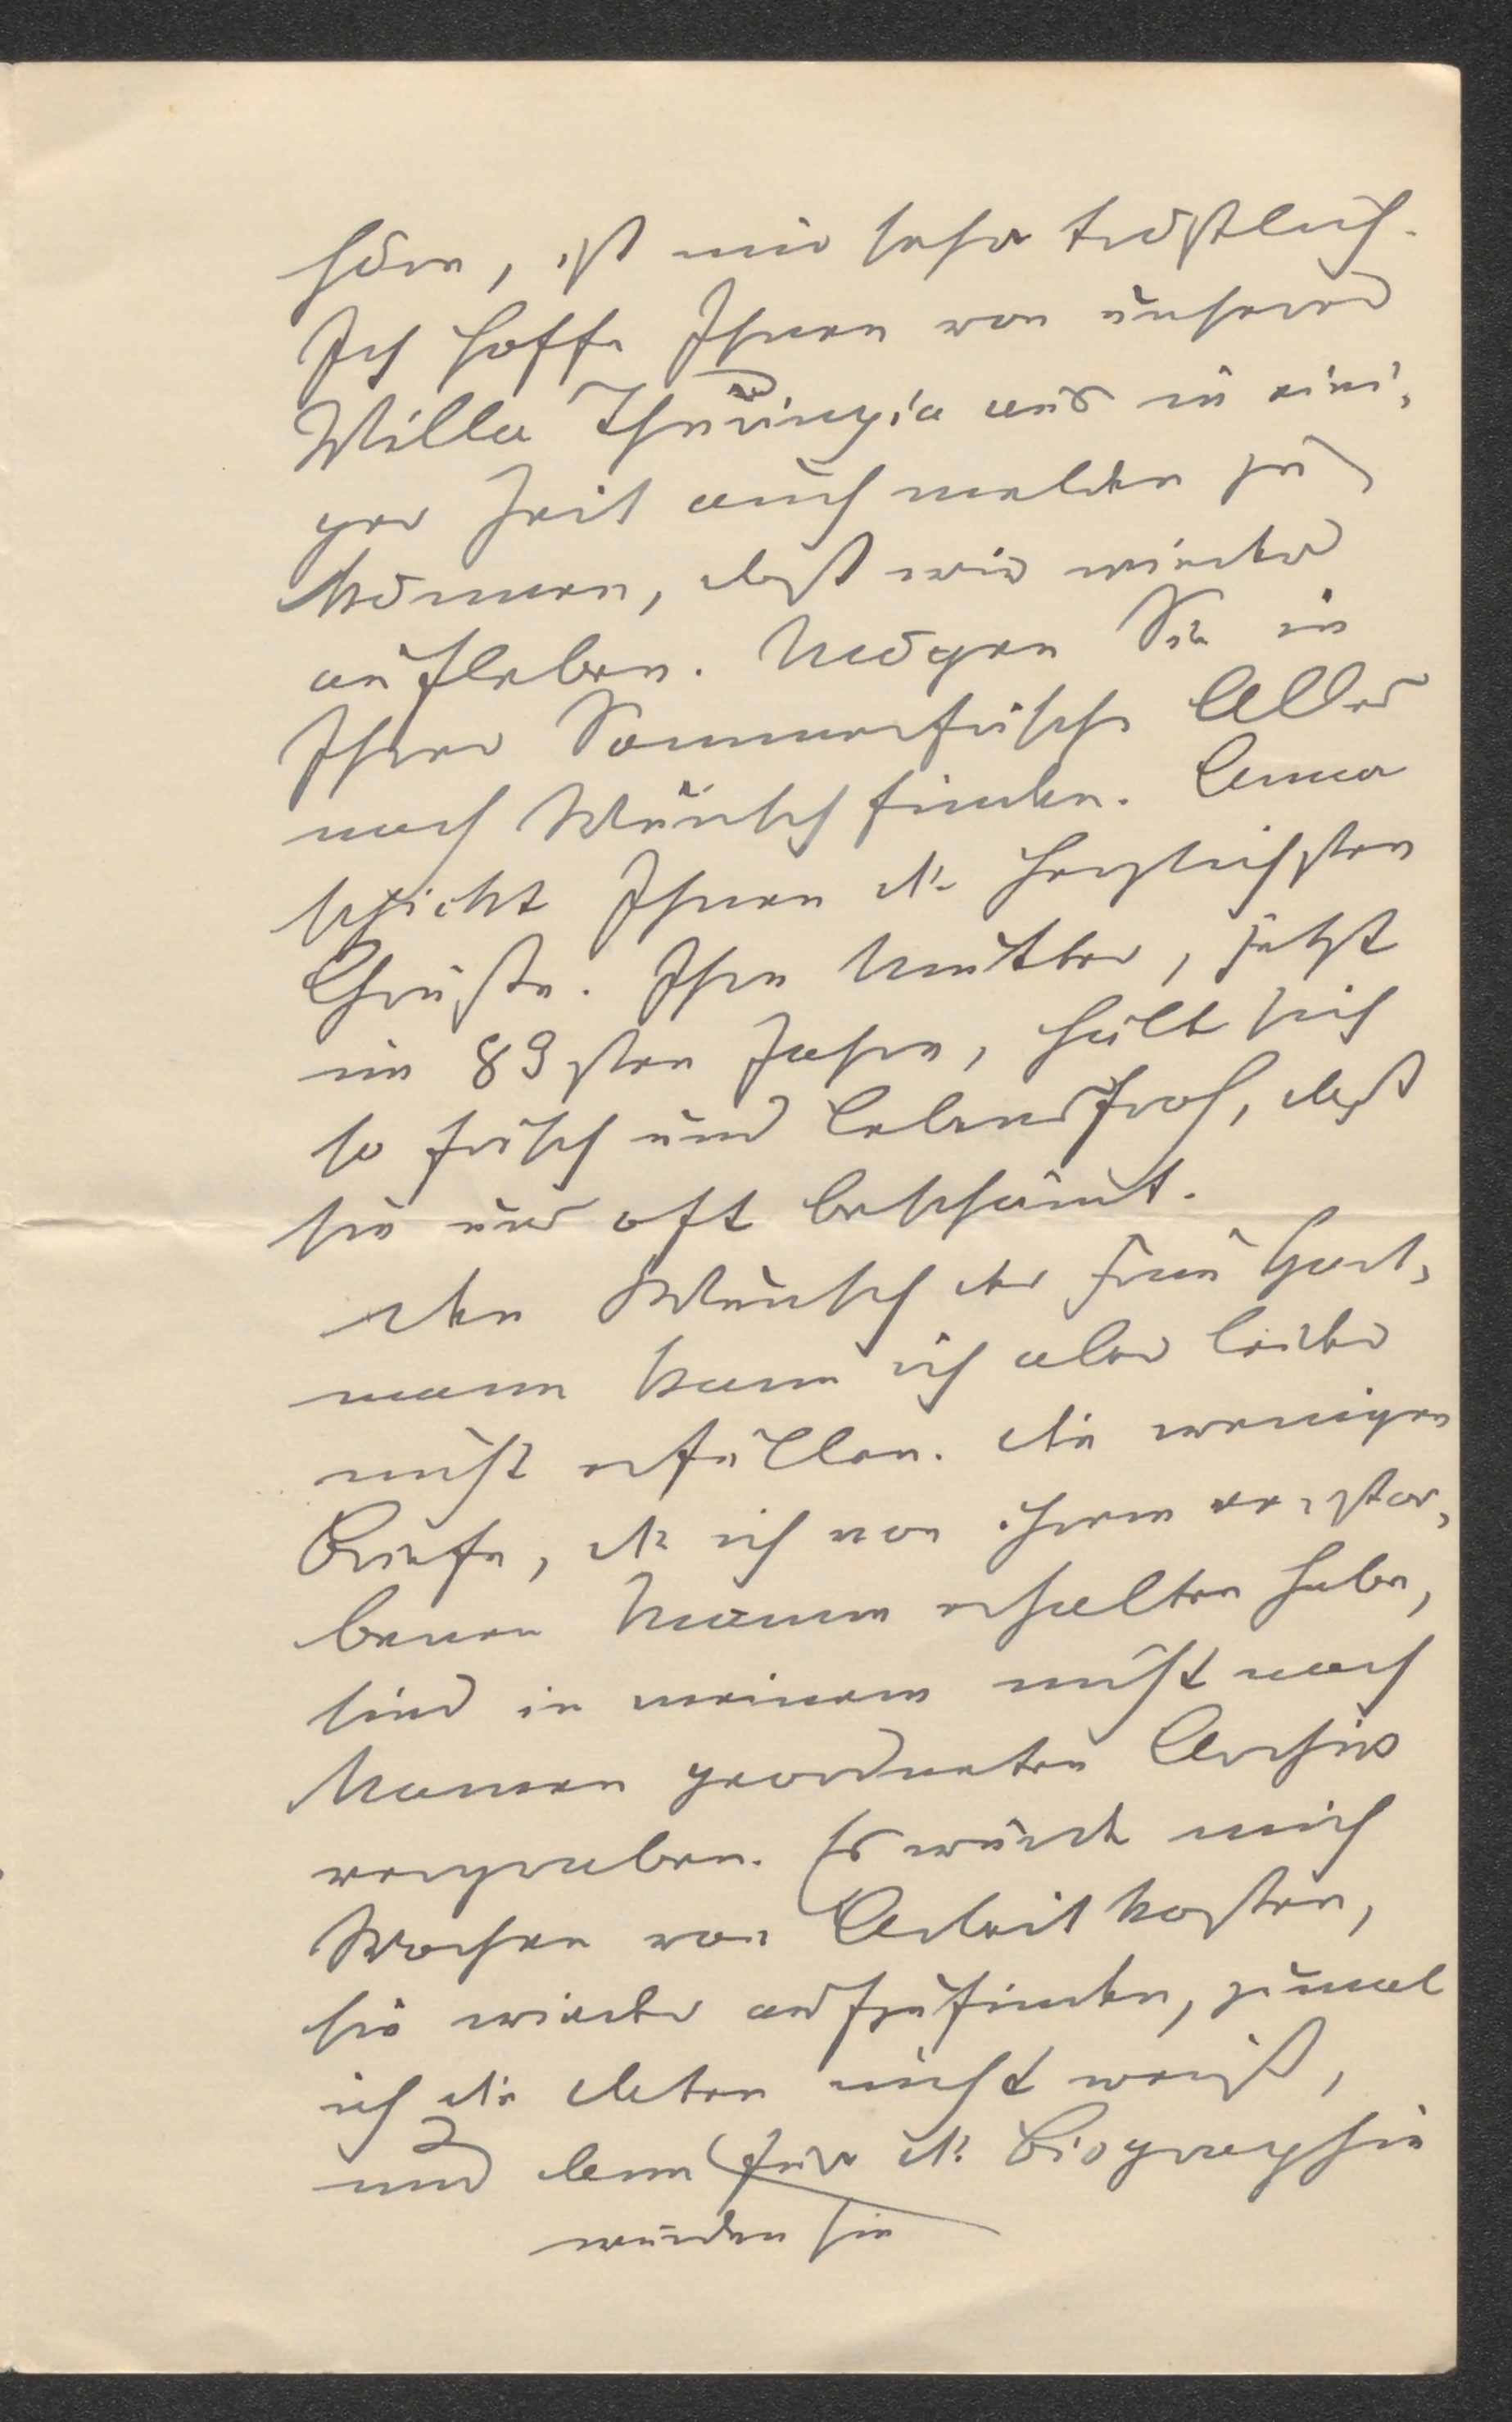 höre, ist mir sehr tröstlich.
Ich hoffe Ihnen von unserer
Villa Thüringia aus in eini-
ger Zeit auch melden zu
können, daß wir wieder
aufleben. Mögen Sie in
Ihrer Sommerfrische Alles
nach Wunsch finden. Anna
schickt Ihnen die herzlichsten
Grüße. Ihre Mutter, jetzt
im 89sten Jahre, hält sich
so frisch und lebensfroh, daß
sie uns oft beschämt.
Den Wunsch der Frau Hart-
mann kann ich aber leider
nicht erfüllen. Die wenigen
Briefe, die ich von ihrem verstor-
benen Manne erhalten habe,
sind in meinem nicht nach
Namen geordneten Archiv
vergraben. Es würde mich
Wochen von Arbeit kosten,
sie wieder aufzufinden, zumal
ich die Daten nicht weiß,
und dann für die Biographie
würden sie